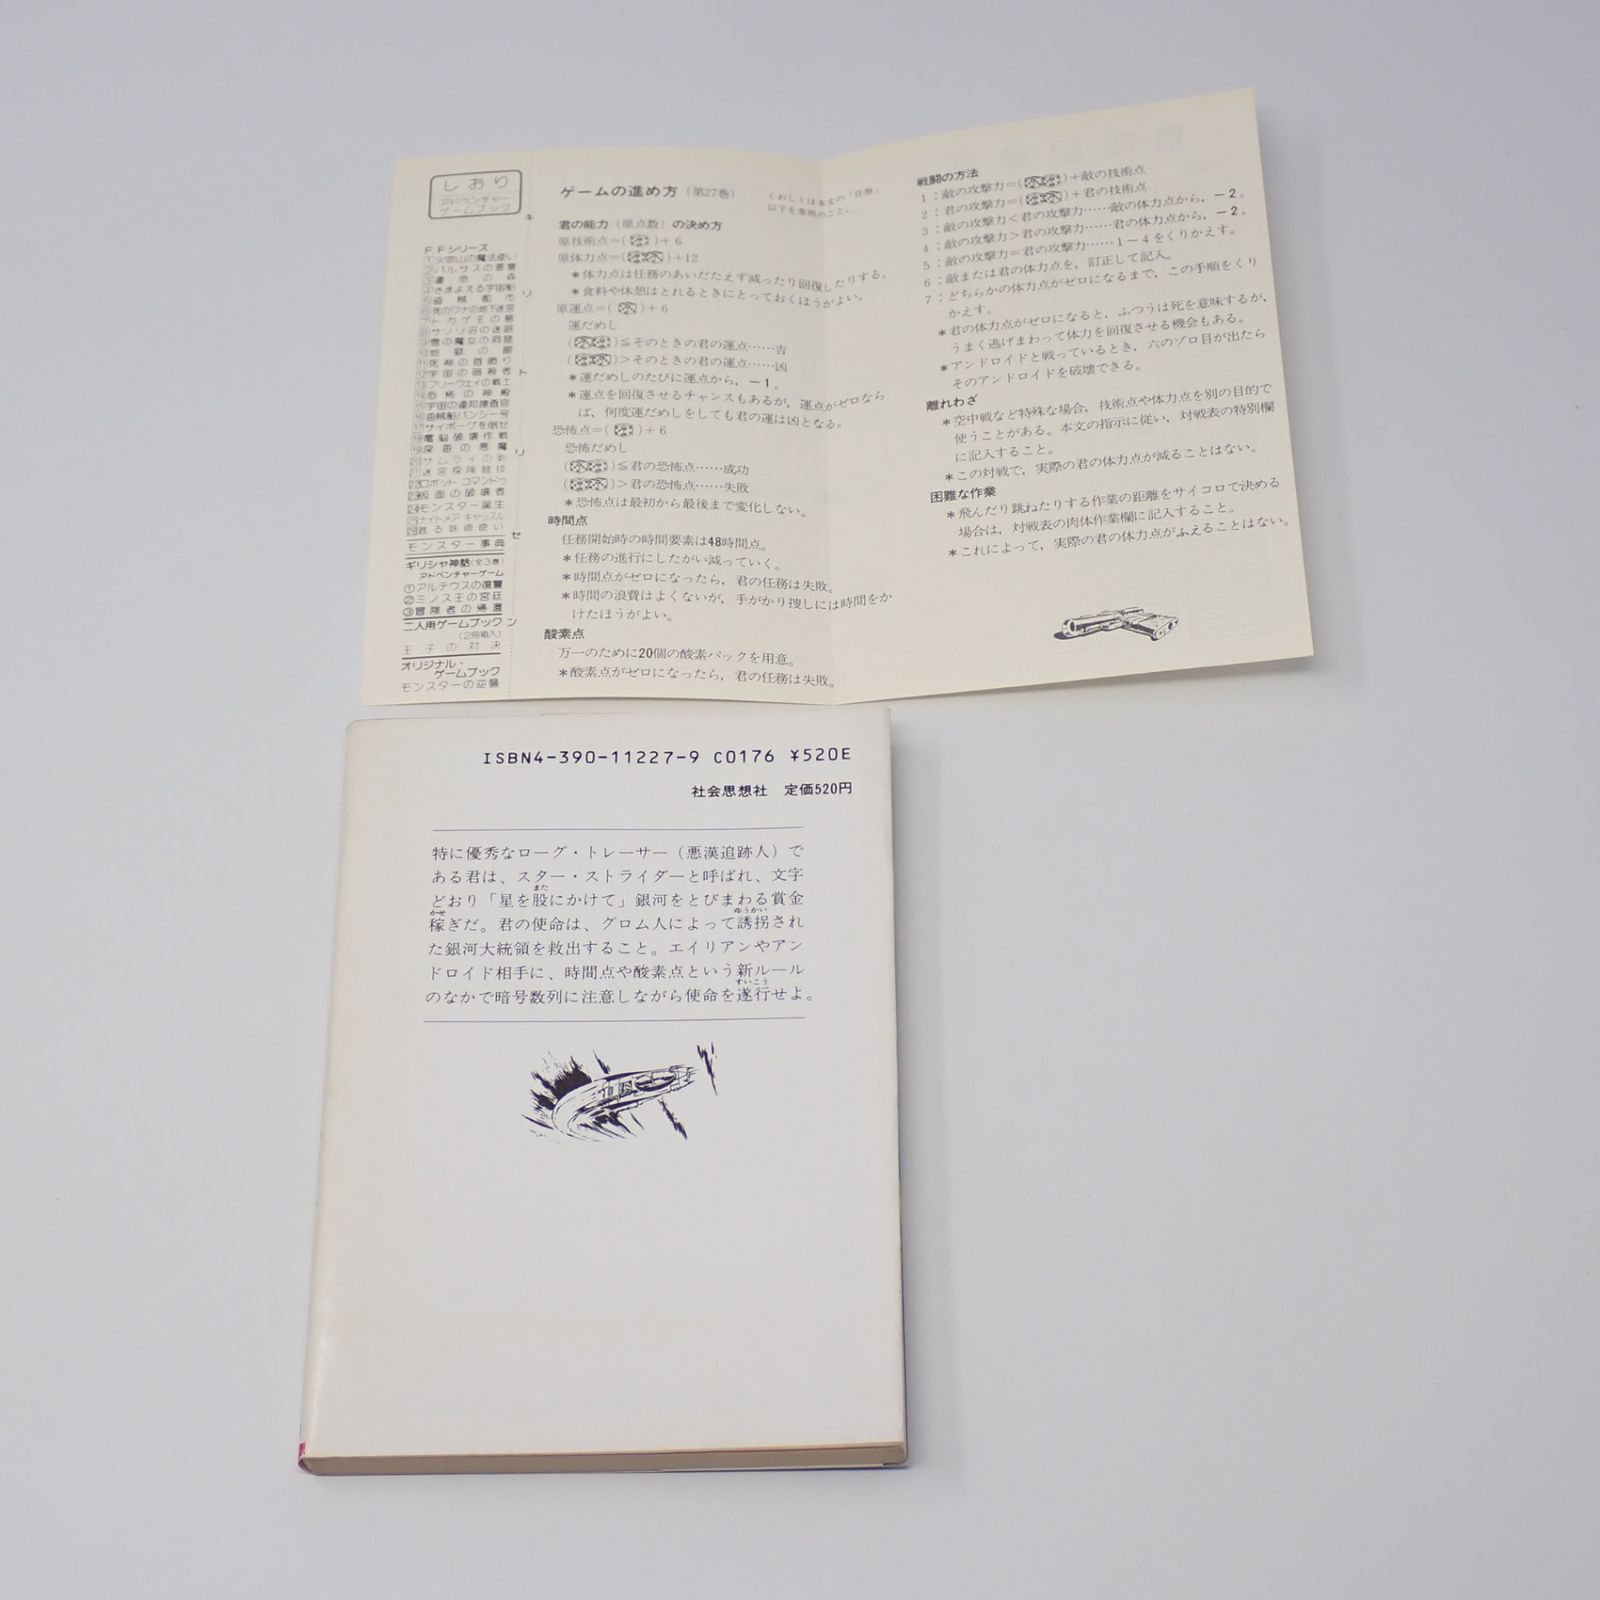 しおり
アドベンチャー
ゲームブック
キリトリセン
ＦＦシリーズ
①火吹山の魔法使い
②バルサスの要塞
③運命の森
④さまよえる宇宙船
⑤盗賊都市
⑥死のワナの地下迷宮
⑦トカゲ王の島
⑧サソリ沼の迷路
⑨雪の魔女の洞窟
⑩地獄の館
⑪死神の首飾り
⑫宇宙の暗殺者
⑬フリーウェイの戦士
⑭恐怖の神殿
⑮宇宙の連邦捜査官
⑯海賊船バンシー号
⑰サイボーグを倒せ
⑱電脳破壊作戦
⑲深海の悪魔
⑳サムライの剣
㉑迷宮探険競技
㉒ロボット コマンドゥ
㉓仮面の破壊者
㉔モンスター誕生
㉕ナイトメア キャッスル
㉖甦る妖術使い
モンスター事典
ギリシャ神話(全3巻)
アドベンチャーゲーム
①アルテウスの復讐
②ミノス王の宮廷
③冒険者の帰還
二人用ゲームブック
(2冊箱入)
王子の対決
オリジナル・
ゲームブック
モンスターの逆襲
ゲームの進め方(第27巻)
くわしくは本文の「任務」
以下を参照のこと。
君の能力(原点数)の決め方
原技術点=( )+6
原体力点=( )+12
＊体力点は任務のあいだたえず減ったり回復したりする。
＊食料や休憩はとれるときにとっておくほうがよい。
原運点=( )+6
運だめし
( )≦そのときの君の運点……吉
( )>そのときの君の運点……凶
＊運だめしのたびに運点から，−1。
＊運点を回復させるチャンスもあるが，運点がゼロなら
ば，何度運だめしをしても君の運は凶となる。
恐怖点=( )+6
恐怖だめし
( )≦君の恐怖点……成功
( )>君の恐怖点……失敗
＊恐怖点は最初から最後まで変化しない。
時間点
任務開始時の時間要素は48時間点。
＊任務の進行にしたがい減っていく。
＊時間点がゼロになったら，君の任務は失敗。
＊時間の浪費はよくないが，手がかり捜しには時間をか
けたほうがよい。
酸素点
万一のために20個の酸素パックを用意。
＊酸素点がゼロになったら，君の任務は失敗。
戦闘の方法
1：敵の攻撃力=( )+敵の技術点
2：君の攻撃力=( )+君の技術点
3：敵の攻撃力<君の攻撃力……敵の体力点から，−2。
4：敵の攻撃力>君の攻撃力……君の体力点から，−2。
5：敵の攻撃力=君の攻撃力……1〜4をくりかえす。
6：敵または君の体力点を，訂正して記入。
7：どちらかの体力点がゼロになるまで，この手順をくり
かえす。
＊君の体力点がゼロになると，ふつうは死を意味するが，
うまく逃げまわって体力を回復させる機会もある。
＊アンドロイドと戦っているとき，六のゾロ目が出たら
そのアンドロイドを破壊できる。
離れわざ
＊空中戦など特殊な場合，技術点や体力点を別の目的で
使うことがある。本文の指示に従い，対戦表の特別欄
に記入すること。
＊この対戦で，実際の君の体力点が減ることはない。
困難な作業
＊飛んだり跳ねたりする作業の距離をサイコロで決める
場合は，対戦表の肉体作業欄に記入すること。
＊これによって，実際の君の体力点がふえることはない。
ISBN4-390-11227-9 C0176 ¥520E
社会思想社 定価520円
特に優秀なローグ・トレーサー（悪漢追跡人）で
ある君は、スター・ストライダーと呼ばれ、文字
どおり「星を股にかけて」銀河をとびまわる賞金
稼ぎだ。君の使命は、グロム人によって誘拐され
た銀河大統領を救出すること。エイリアンやアン
ドロイド相手に、時間点や酸素点という新ルール
のなかで暗号数列に注意しながら使命を遂行せよ。